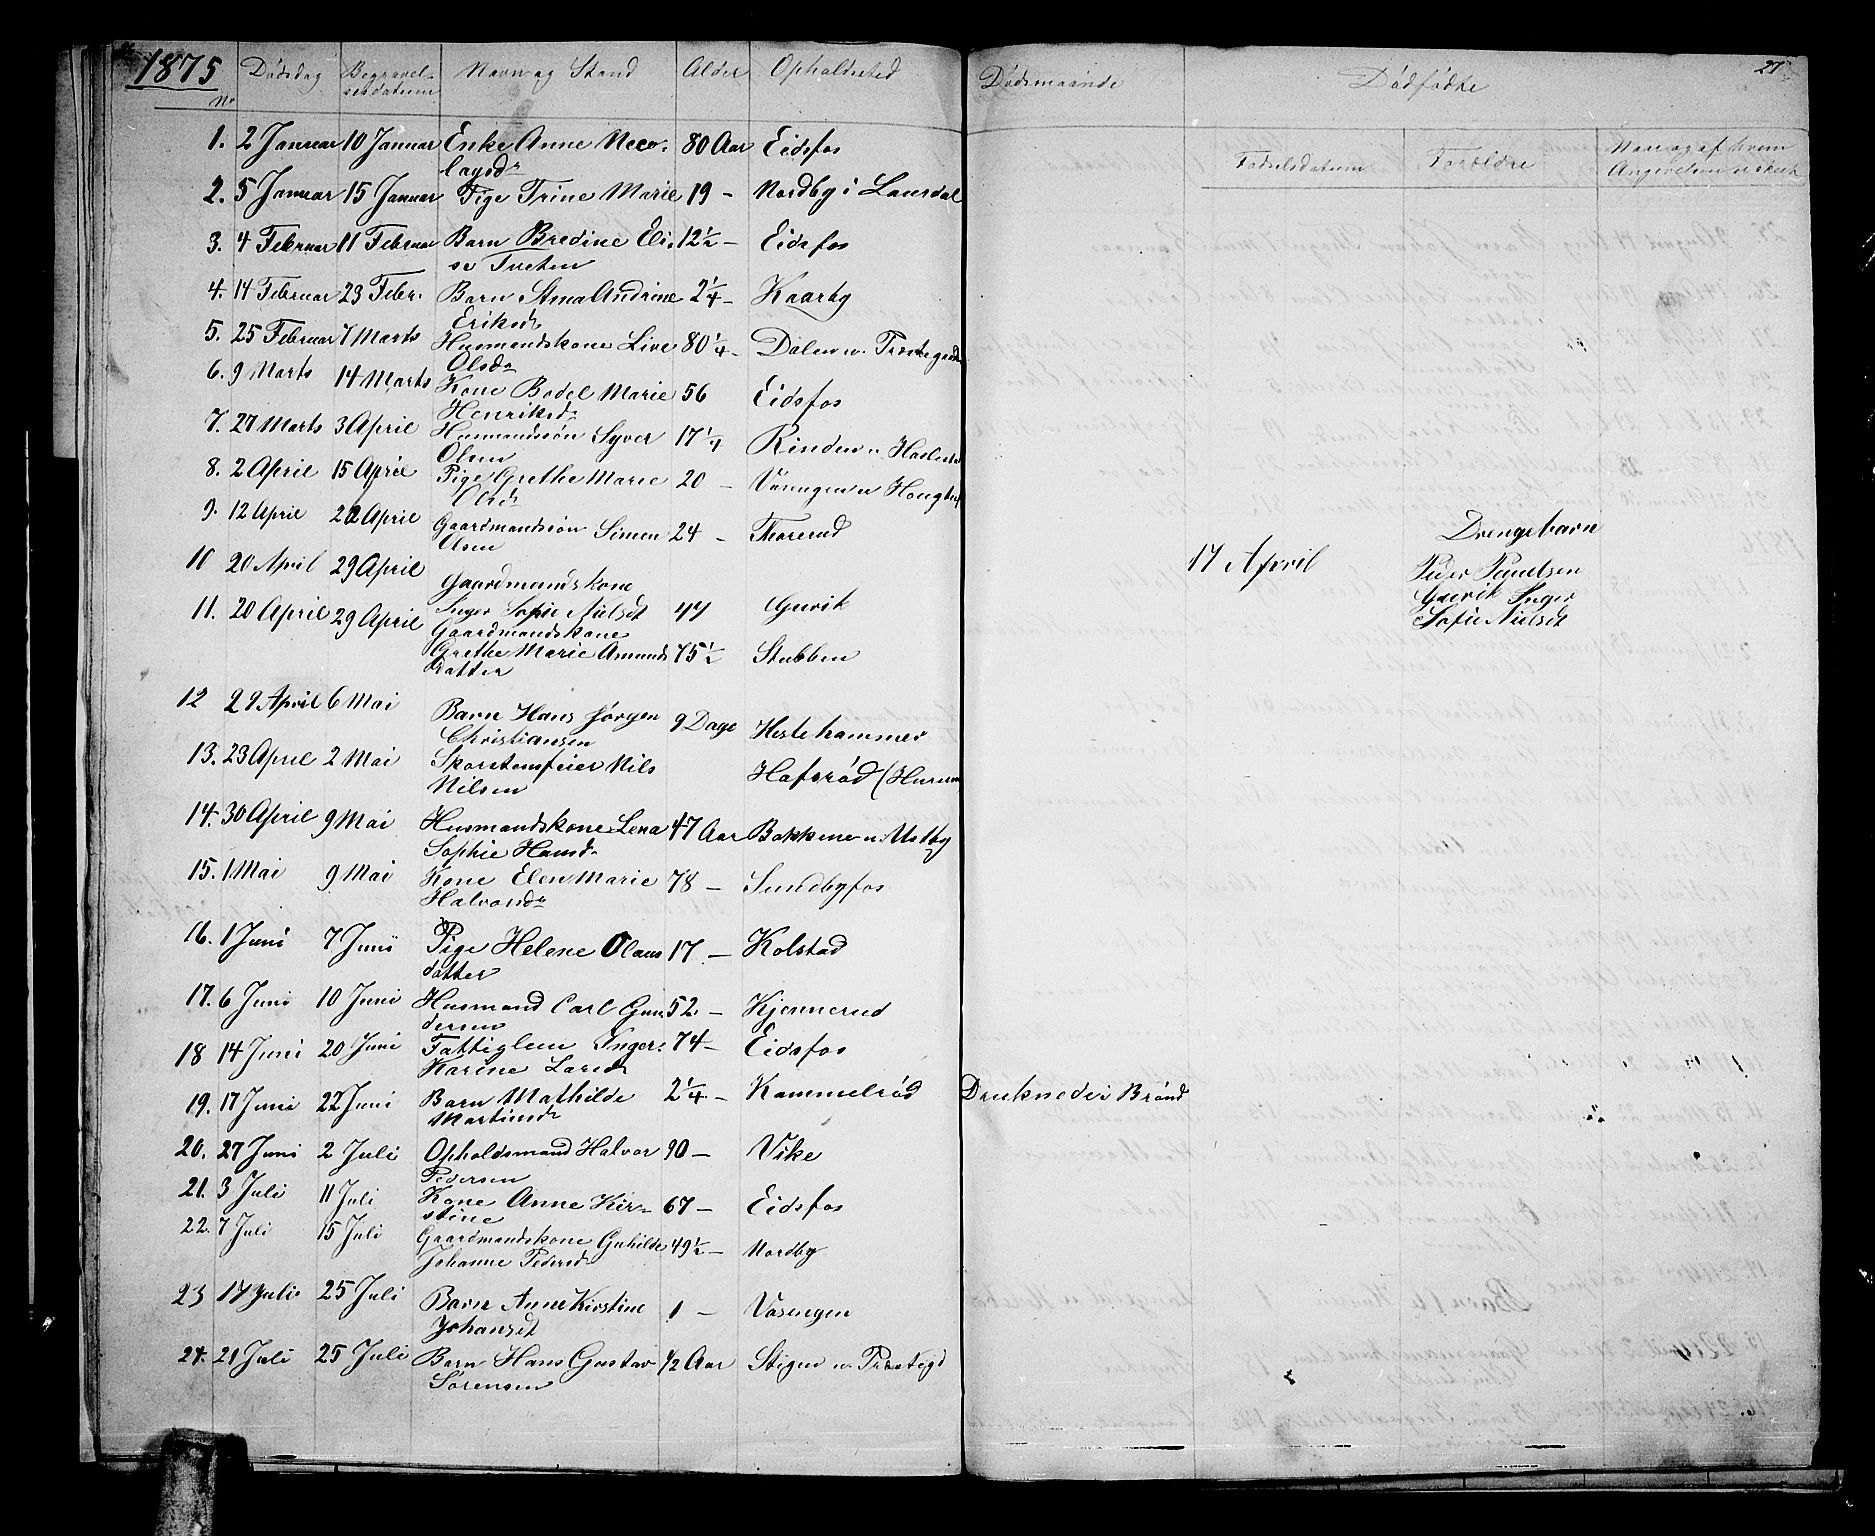 1875 Dødsdag Begravel- Navn og Stand Alder Opholdssted Dødsmaande Dødfødte 27
No sesdatum
Fødselsdatum Forældre Navn og af hvem
Angivelsen er skeet
1. 2 Januar 10 Januar Enke Anne Neco- 80 Aar Eidsfos
laysdr
2. 5 Januar 15 Januar Pige Trine Marie 19 - Nordby i Lausdal
3. 4 Februar 11 Februar Barn Bredine Eli- 12½ - Eidsfos
se Tveten
4. 14 Februar 23 Febr. Barn Stina Andrine 2¼ - Kaarby
Eriksdr
5. 25 Februar 7 Marts Husmandskone Live 80¼ - Dalen u. Præstegaarden
Olsdr
6. 9 Marts 14 Marts Kone Bodel Marie 56 Eidsfos
Henriksdr
7. 27 Marts 3 April Husmandssøn Syver 17¼ Rinden u.
Olsen
8. 2 April 15 April Pige Grethe Marie 20 - Vasengen u.
Olsdr
9. 12 April 22 April Gaardmandssøn Simen 24 - Thorerud
Olsen
10 20 April 29 April Gaardmandskone
Inger Sofie Nielsdt 47 Guvik
17 April Drengebarn
Peder Paulsen
Guvik Inger
Sofie Nielsdt
11. 20 April 29 April Gaardmandskone
Grethe Marie Amunds 75½ Stubben
datter
12 29 April 6 Mai Barn Hans Jørgen 9 Dage Hestehammer
Christiansen
13. 23 April 2 Mai Skorstensfeier Nils Hafsrød (Hurum
Nilsen
14. 30 April 9 Mai Husmandskone Lena 47 Aar Bakkene u. Næsby
Sophie Hansd.
15. 1 Mai 9 Mai Kone Elen Marie 78 - Sundbyfos
Halvorsdr
16. 1 Juni 7 Juni Pige Helene Olaus 17 - Kolstad
datter
17. 6 Juni 10 Juni Husmand Carl Gun- 52. - Kjennerud
dersen
18 14 Juni 20 Juni Fattiglem Inger- 74 - Eidsfos
Karine Larsdr
19. 17 Juni 22 Juni Barn Mathilde 2¼ - Kammelrød Druknede i Brønd
Martinsdr
20. 27 Juni 2 Juli Opholdsmand Halvor 90 - Vike
Pedersen
21. 3 Juli 11 Juli Kone Anne Kir- 67 - Eidsfos
stine
22. 7 Juli 15 Juli Gaardmandskone Guhilde 49½ - Nordby
Johanne Pedersdr
23 17 Juli 25 Juli Barn Anne Kirstine 1 - Vasengen
Johansdt
24. 21 Juli 25 Juli Barn Hans Gustav ½ Aar Stigen u. Præstegd
Sørensen